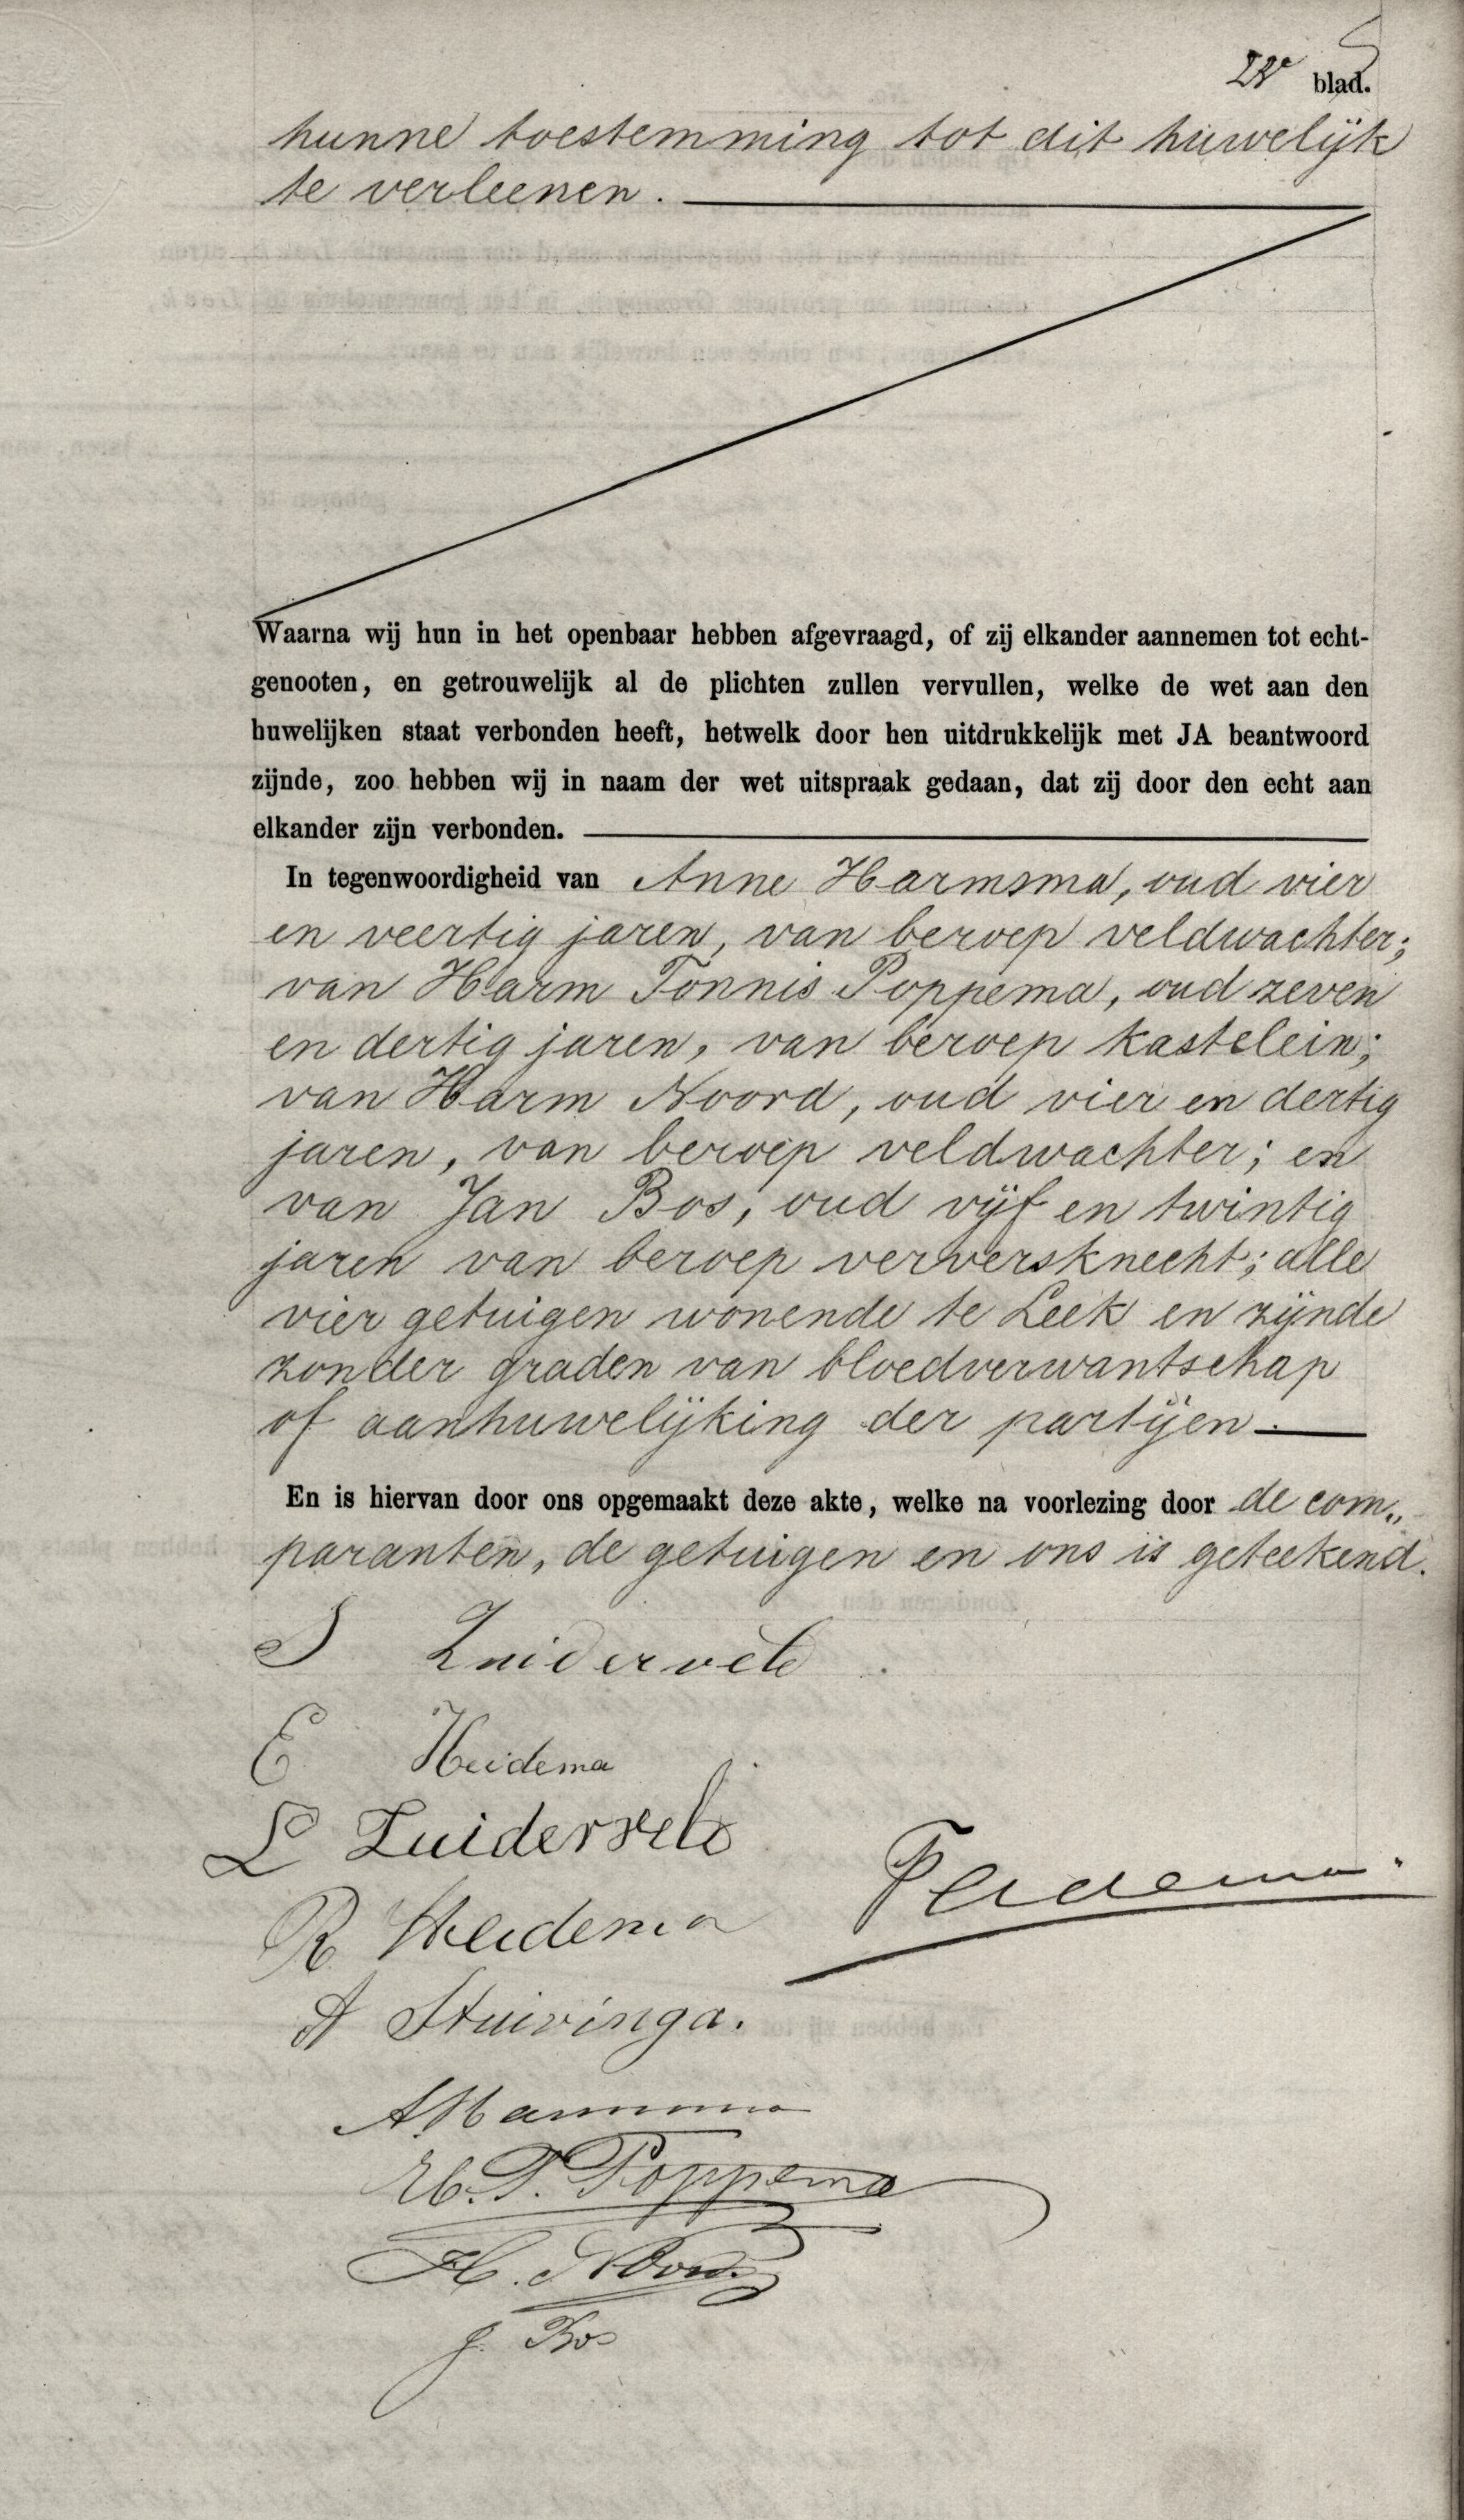 blad.
hunne toestemming tot dit huwelijk
te verleenen.
Waarna wij hun in het openbaar hebben afgevraagd, of zij elkander aannemen tot echt-
genooten, en getrouwelijk al de plichten zullen vervullen, welke de wet aan den
huwelijken staat verbonden heeft, hetwelk door hen uitdrukkelijk met JA beantwoord
zijnde, zoo hebben wij in naam der wet uitspraak gedaan, dat zij door den echt aan
elkander zijn verbonden.
In tegenwoordigheid van Anne Harmsma, oud vier
en veertig jaren, van beroep veldwachter;
van Harm Tonnis Poppema, oud zeven
en dertig jaren, van beroep kastelein;
van Harm Noord, oud vier en dertig
jaren, van beroep veldwachter; en
van Jan Bos, oud vijf en twintig
jaren van beroep verversknecht; alle
vier getuigen wonende te Leek en zijnde
zonder graden van bloedverwantschap
of aanhuwelijking der partijen.
En is hiervan door ons opgemaakt deze akte, welke na voorlezing door de com„
paranten, de getuigen en ons is geteekend.
S Zuiderveld
E Heidema
L Zuiderveld
R Heidema
A Stuivinga.
A Harmsma
H. T. Poppema
H. Noord
J. Bos